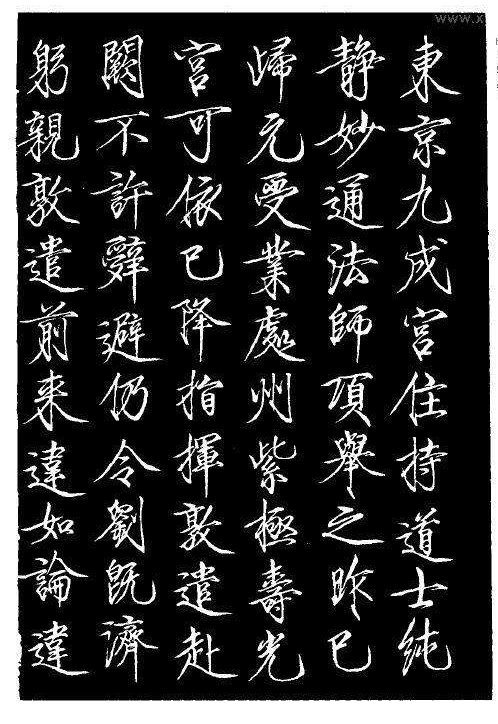 東京九成宮住持道士純
静妙通法師項舉之昨已
歸元受業處州紫極壽光
宮可依已降指揮敦遣赴
闕不許辭避仍令劉既濟
躬親敦遣前来違如論違
www.x